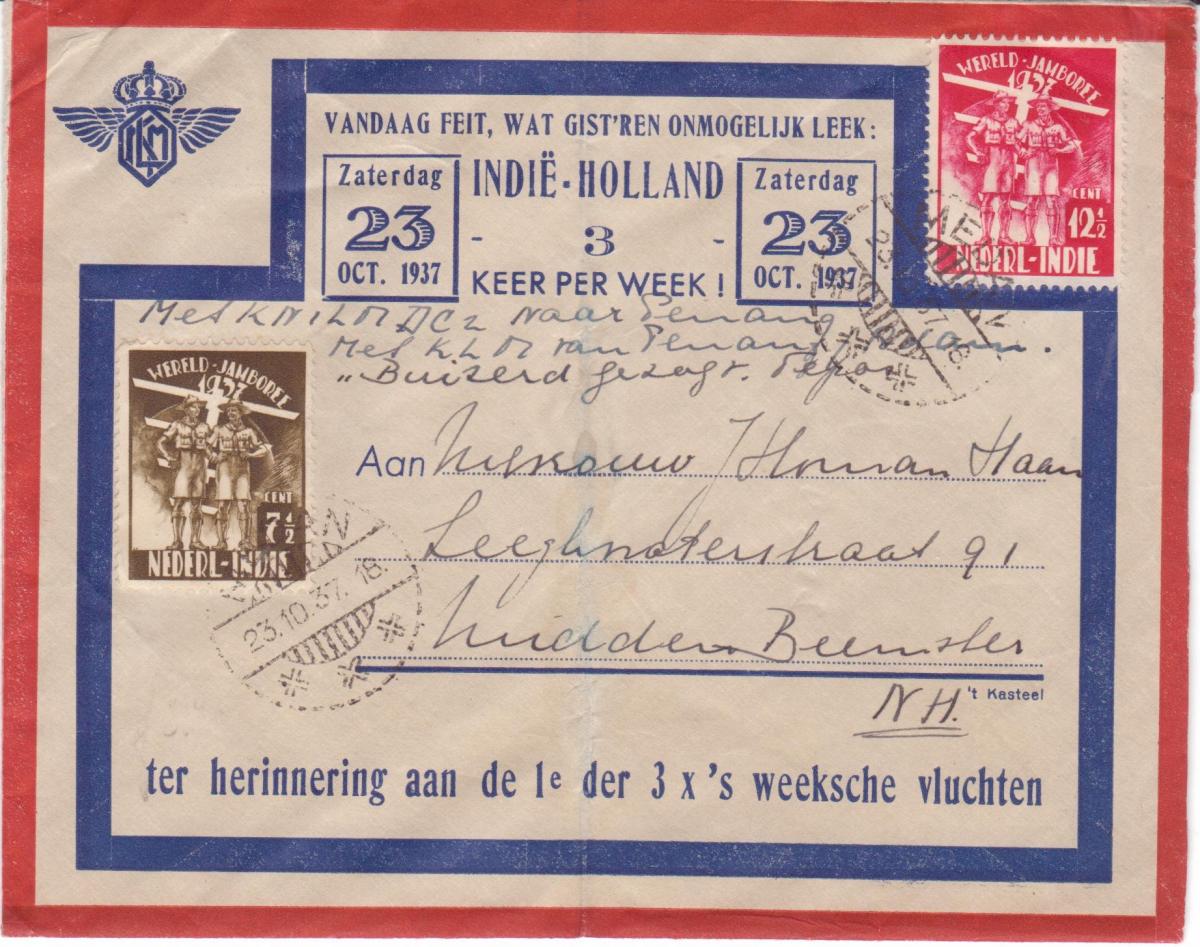 KLM
VANDAAG FEIT, WAT GIST'REN ONMOGELIJK LEEK:
Zaterdag
23
OCT. 1937
INDIË-HOLLAND
- 3 -
KEER PER WEEK!
Zaterdag
23
OCT. 1937
WERELD-JAMBOREE
1937
CENT
12½
NEDERL-INDIE
Met KNILM DC2 naar Penang
Met KLM van Penang
"Buizerd gezagv.
WERELD-JAMBOREE
1937
CENT
7½
NEDERL-INDIE
MEDAN
23.10.37.18.
Aan Mevrouw Homan Haan
Leeghwaterstraat 91
Midden Beemster
't Kasteel
NH.
ter herinnering aan de 1e der 3 x 's weeksche vluchten